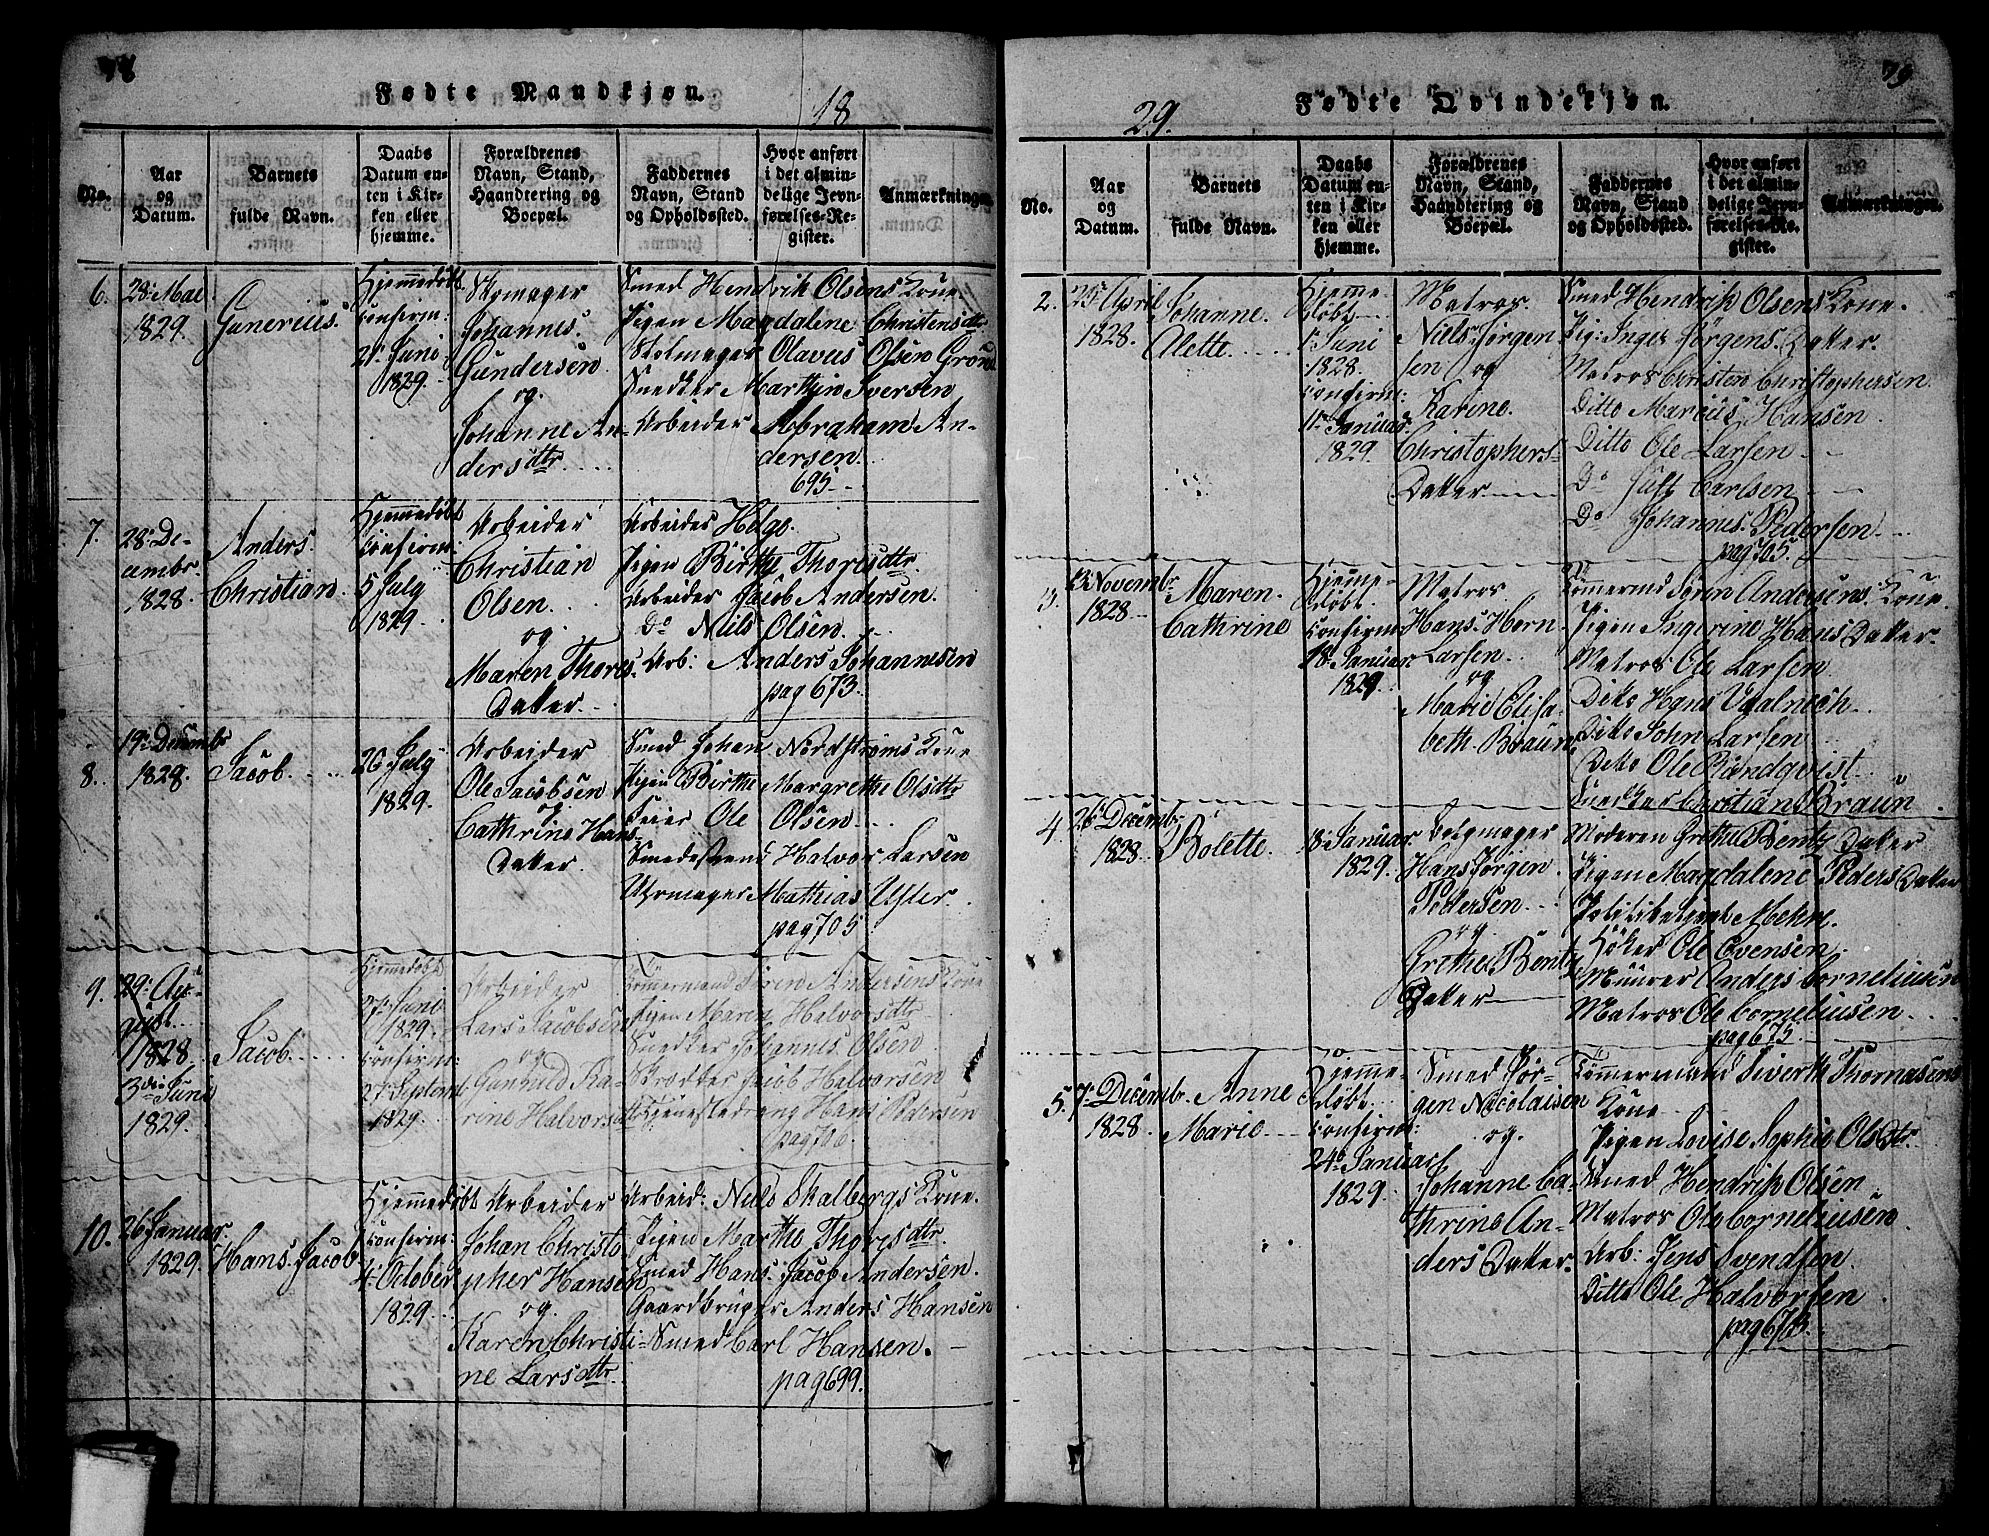 78
Fødte Mandkjøn.
18
No.
Aar
og
Datum.
Barnets
fulde Navn.
Daabs
Datum en-
ten i Kir-
ken eller
hjemme.
Forældrenes
Navn, Stand,
Haandtering og
Boepæl.
Faddernes
Navn, Stand
og Opholdssted.
Hvor anført
i det almin-
delige Jevn-
førelses-Re-
gister.
Anmærkninger.
6.
28de Mai
1829.
Gunerius.
Hjemmedøbt
Confirm:
21de Juni
1829.
Skomager
Johannes
Gundersen
og
Johanne An-
dersdtr
Smed Hendrik Olsens Kone.
Pigen Magdalene Christensdtr
Stolmager Olavus Olsen
Snedker Marthin Iversen
Arbeider Abraham An-
dersen
695
7.
28de De-
cembr
1828.
Anders
Christian.
Hjemmedøbt
Confirm:
5 July
1829
Arbeider
Christian
Olsen
og
Maren Thores
Datter
Arbeider Helge
Pigen Birthe Thoresdtr.
Arbeider Jacob Andersen.
Do Niels Olsen.
Arb: Anders Johannesen
pag 673.
8.
19de Decembr
1828.
Jacob.
26 July
1829.
Arbeider
Ole Jacobsen
og
Cathrine Hans
Datter.
Smed Johan Nordstrøms Kone
Pigen Birthe Margrethe Olsdtr
Feier Ole Olsen
Smedesvend Halvor Larsen
Uhrmager Mathias
pag 705
9.
29de Au-
gust
1828
3die Juni
1829.
Jacob.
Hjemmedøbt
27de Juni
1829.
Confirm:
27de Septembr
1829.
Arbeider
Lars Jacobsen
og
Gunhild Ka-
rine Halvorsd
Tømmermand Søren Andersens Kone
Pigen Maren Halvorsdtr
Snedker Johannes Olsen
Jacob Halvorsen
Hans Pedersen
pag 706
10.
26 Januar.
1829.
Hans Jacob
Hjemmedøbt
Confirm:
4de October
1829.
Arbeider
Johan Christo
pher Hansen
og
Karen Christi-
ne Larsdtr.
Arbeid: Niels Skalbergs Kone.
Pigen Marthe Thorsdtr.
Smed Hans Jacob Andersen.
Gaardbruger Anders Hansen
Smed Carl Hansen.
pag 699.
79
29.
Fødte Qvindekjøn.
No.
Aar
og
Datum.
Barnets
fulde Navn.
Daabs
Datum en-
ten i Kir-
ken eller
hjemme.
Forældrenes
Navn, Stand,
Haandtering og
Boepæl.
Faddernes
Navn, Stand
og Opholdssted.
Hvor anført
i det almin-
delige Jevn-
førelses-Re-
gister.
Anmærkninger.
2.
25de April
1828.
Johanne
Alette
Hjemme-
døbt
1ste Juni
1828.
Confirm:
11te Januar
1829.
Matros
Niels Jørgen
sen og
Karine
Christophers-
Datter
Smed Hendrik Olsens Kone.
Pig: Inger Jørgens Datter.
Matros Christen Christophersen.
Ditto Marius Hansen
Ditto Ole Larsen
Do Just Carlsen
Do Johannes Pedersen
pag 705.
3.
13 Novembr
1828
Maren
Cathrine
Hjemme-
døbt.
Confirm
18 Januar
1829.
Matros
Hans Horn
Larsen
og
Marie Elisa-
beth Braun
Tømermd Søren Andersens Kone
Pigen Ingerine Hans Datter
Matros Ole Larsen
Ditto Hans
Ditto John Larsen
Ditto Ole Randqvist
Snedker Christian Braun
4.
26de Decembr
1828
Bolette.
18 Januar
1829.
Hans Jørgen
Pedersen
og
Grethe Bentz
Datter
Moderen Grethe Bentz Datter
Pigen Magdalene Peders Datter
Politibetjent
Høker Ole Evensen
Muurer Anders Corneliusen
Matros Ole Corneliusen
pag 675.
5.
7de Decembr
1828
Anne
Marie
Hjemme-
døbt
Confirm:
24de Januar
1829.
Smed Jør-
gen Nicolaisen
og.
Johanne Ca-
thrine An-
ders Datter
Tømmermand Siverth Thomasens
Kone
Pigen Lovise Sophie Olsdtr.
Smed Hendrik Olsen
Matros Ole Corneliusen
Arb: Jens Svendsen
Ditto Ole Halvorsen
pag 673.